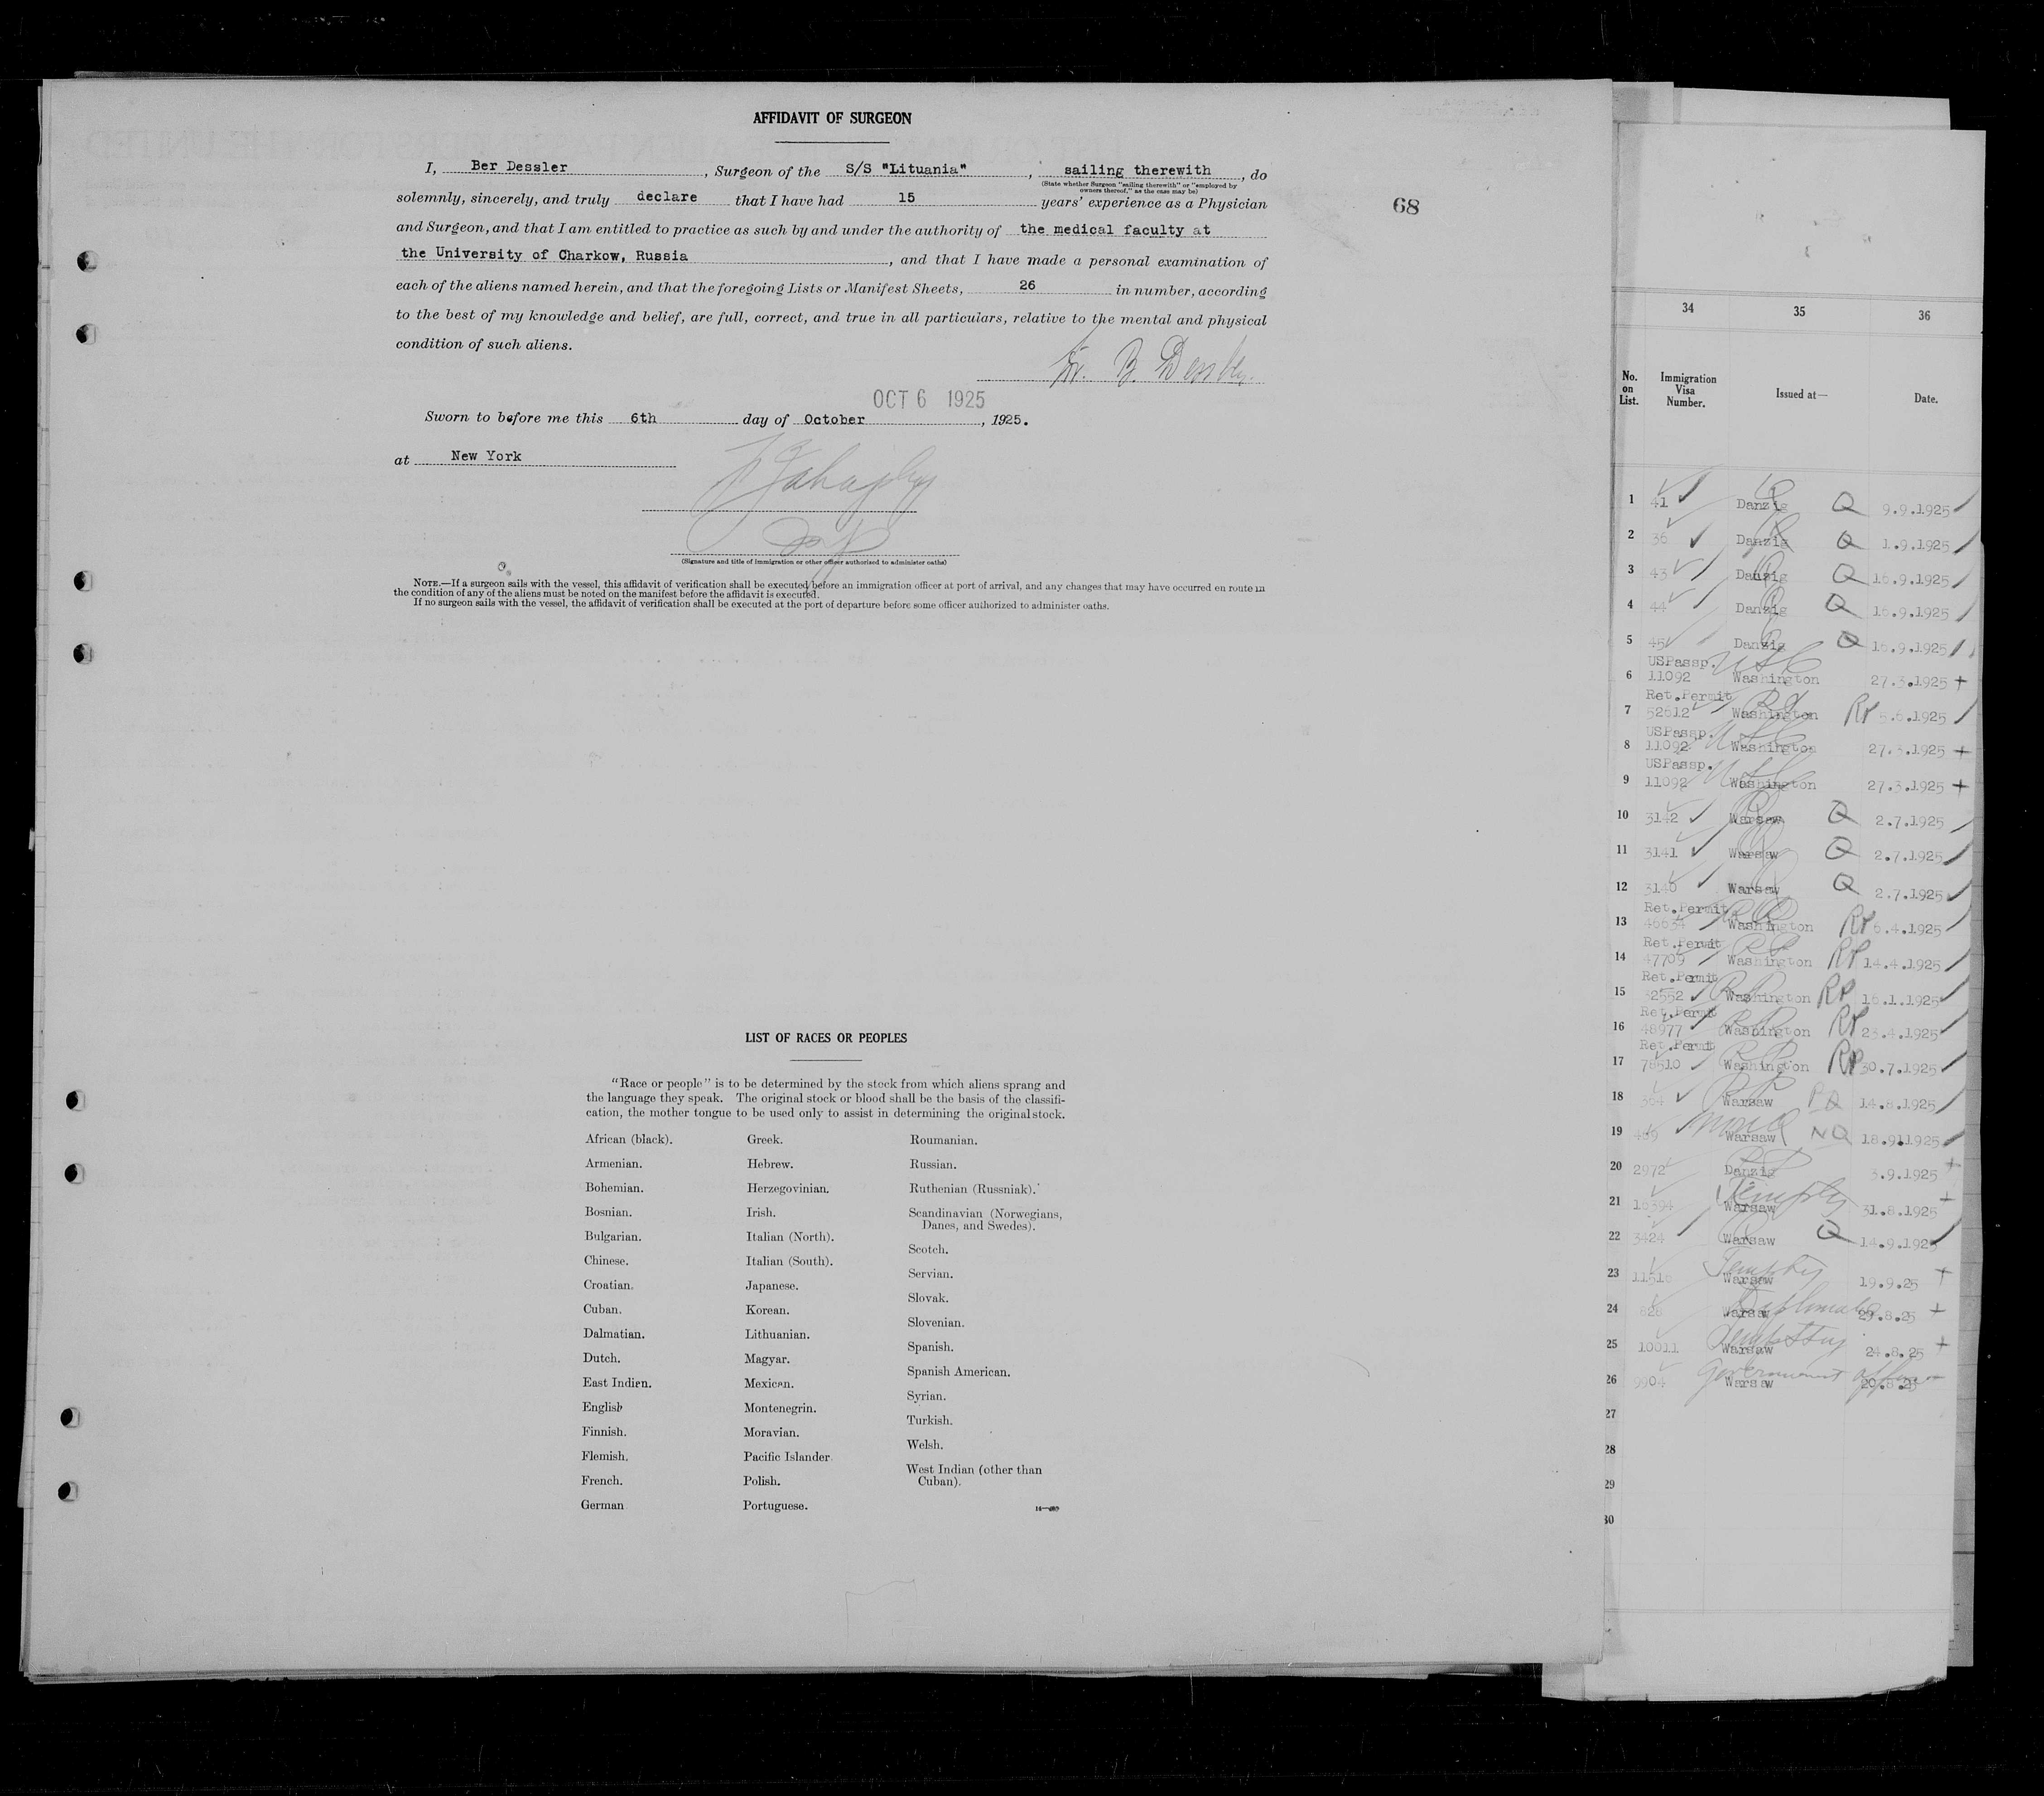 AFFIDAVIT OF SURGEON
I, Ber Dessler, Surgeon of the S/S "Lituania", sailing therewith, do
(State whether Surgeon "sailing therewith" or "employed by
owners thereof," as the case may be)
solemnly, sincerely, and truly declare that I have had 15 years' experience as a Physician
68
and Surgeon, and that I am entitled to practice as such by and under the authority of the medical faculty at
the University of Charkow, Russia, and that I have made a personal examination of
each of the aliens named herein, and that the foregoing Lists or Manifest Sheets, 26 in number, according
to the best of my knowledge and belief, are full, correct, and true in all particulars, relative to the mental and physical
condition of such aliens.
Dr. B. Dessler
OCT 6 1925
Sworn to before me this 6th day of October, 1925.
at New York
(Signature and title of immigration or other officer authorized to administer oaths)
NOTE.—If a surgeon sails with the vessel, this affidavit of verification shall be executed before an immigration officer at port of arrival, and any changes that may have occurred en route in
the condition of any of the aliens must be noted on the manifest before the affidavit is executed.
If no surgeon sails with the vessel, the affidavit of verification shall be executed at the port of departure before some officer authorized to administer oaths.
LIST OF RACES OR PEOPLES
"Race or people" is to be determined by the stock from which aliens sprang and
the language they speak. The original stock or blood shall be the basis of the classifi-
cation, the mother tongue to be used only to assist in determining the original stock.
African (black).
Armenian.
Bohemian.
Bosnian.
Bulgarian.
Chinese.
Croatian.
Cuban.
Dalmatian.
Dutch.
East Indian.
English
Finnish.
Flemish.
French.
German
Greek.
Hebrew.
Herzegovinian.
Irish.
Italian (North).
Italian (South).
Japanese.
Korean.
Lithuanian.
Magyar.
Mexican.
Montenegrin.
Moravian.
Pacific Islander
Polish.
Portuguese.
Roumanian.
Russian.
Ruthenian (Russniak).
Scandinavian (Norwegians,
Danes, and Swedes).
Scotch.
Servian.
Slovak.
Slovenian.
Spanish.
Spanish American.
Syrian.
Turkish.
Welsh.
West Indian (other than
Cuban).
34 35 36
No. on List. Immigration Visa Number. Issued at— Date.
1 41 Danzig Q 9.9.1925
2 36 Danzig Q 1.9.1925
3 43 Danzig Q 16.9.1925
4 44 Danzig Q 16.9.1925
5 45 Danzig Q 16.9.1925
USPassp. USC
6 11092 Washington 27.3.1925 +
Ret.Permit
7 52612 Washington RP 5.6.1925
USPassp. USC
8 11092 Washington 27.3.1925 +
USPassp. USC
9 11092 Washington 27.3.1925 +
10 3142 Warsaw Q 2.7.1925
11 3141 Warsaw Q 2.7.1925
12 3140 Warsaw Q 2.7.1925
Ret.Permit
13 46634 Washington RP 6.4.1925
Ret.Permit
14 47709 Washington RP 14.4.1925
Ret.Permit
15 Washington RP 16.1.1925
Ret.Permit
16 48977 Washington RP 23.4.1925
Ret.Permit
17 78510 Washington RP 30.7.1925
18 364 Warsaw PQ 14.8.1925
19 Warsaw NQ 18.9.1925
20 2972 Danzig 3.9.1925 +
21 Warsaw 31.8.1925 +
22 3424 Warsaw Q 14.9.1925
23 Warsaw 19.9.25 +
24 828 Warsaw Diplomat 29.8.25 +
25 10011 Warsaw 24.8.25 +
26 9904 Warsaw Government 20.8.25
27
28
29
30